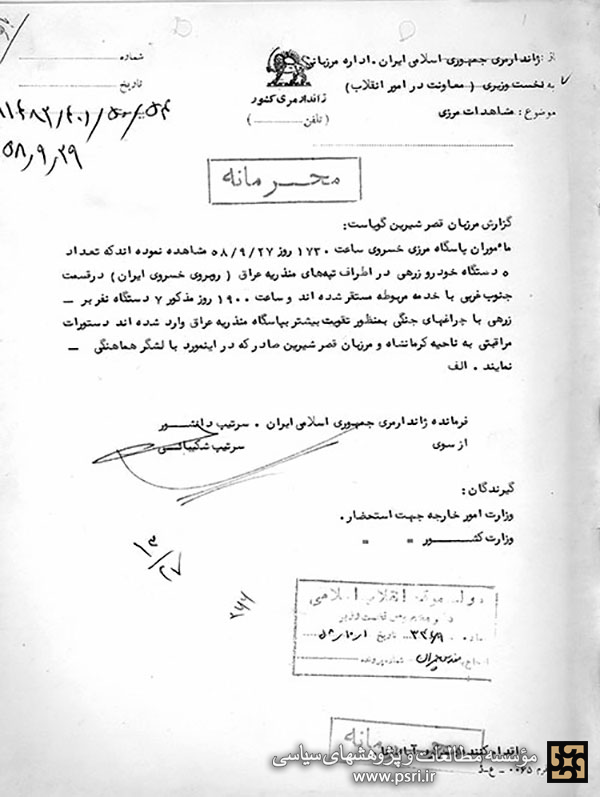 از : ژاندارمری جمهوری اسلامی ایران . اداره مرزبانی
به نخست وزیری ( معاونت در امور انقلاب )
موضوع : مشاهدات مرزی
ژاندارمری کشور
( تلفن ............ )
شماره
تاریخ
۵۸٫۹٫۲۹
محرمانه
گزارش مرزبان قصر شیرین گویاست :
مأموران پاسگاه مرزی خسروی ساعت ۱۷۳۰ روز ۵۸/۹/۲۷ مشاهده نموده اندکه تعداد
۵ دستگاه خودرو زرهی در اطراف تپه‌های منذریه عراق ( روبروی خسروی ایران ) درقسمت
جنوب غربی با خدمه مربوطه مستقر شده اند و ساعت ۱۹۰۰ روز مذکور ۷ دستگاه نفربر –
زرهی با چراغهای جنگی بمنظور تقویت بیشتر بپاسگاه منذریه عراق وارد شده اند دستورات
مراقبتی به ناحیه کرمانشاه و مرزبان قصر شیرین صادر که در اینمورد با لشگر هماهنگی –
نمایند . الف
فرمانده ژاندارمری جمهوری اسلامی ایران . سرتیپ دانشور
از سوی سرتیپ شکیبائی
گیرندگان :
وزارت امور خارجه جهت استحضار .
وزارت کشور " "
۹/۲۷
۲۶۶
دولت موقت انقلاب اسلامی
تاریخ
شماره پرونده
محرمانه
اقدام کننده
مؤسسه مطالعات و پژوهشهای سیاسی
www.psri.ir